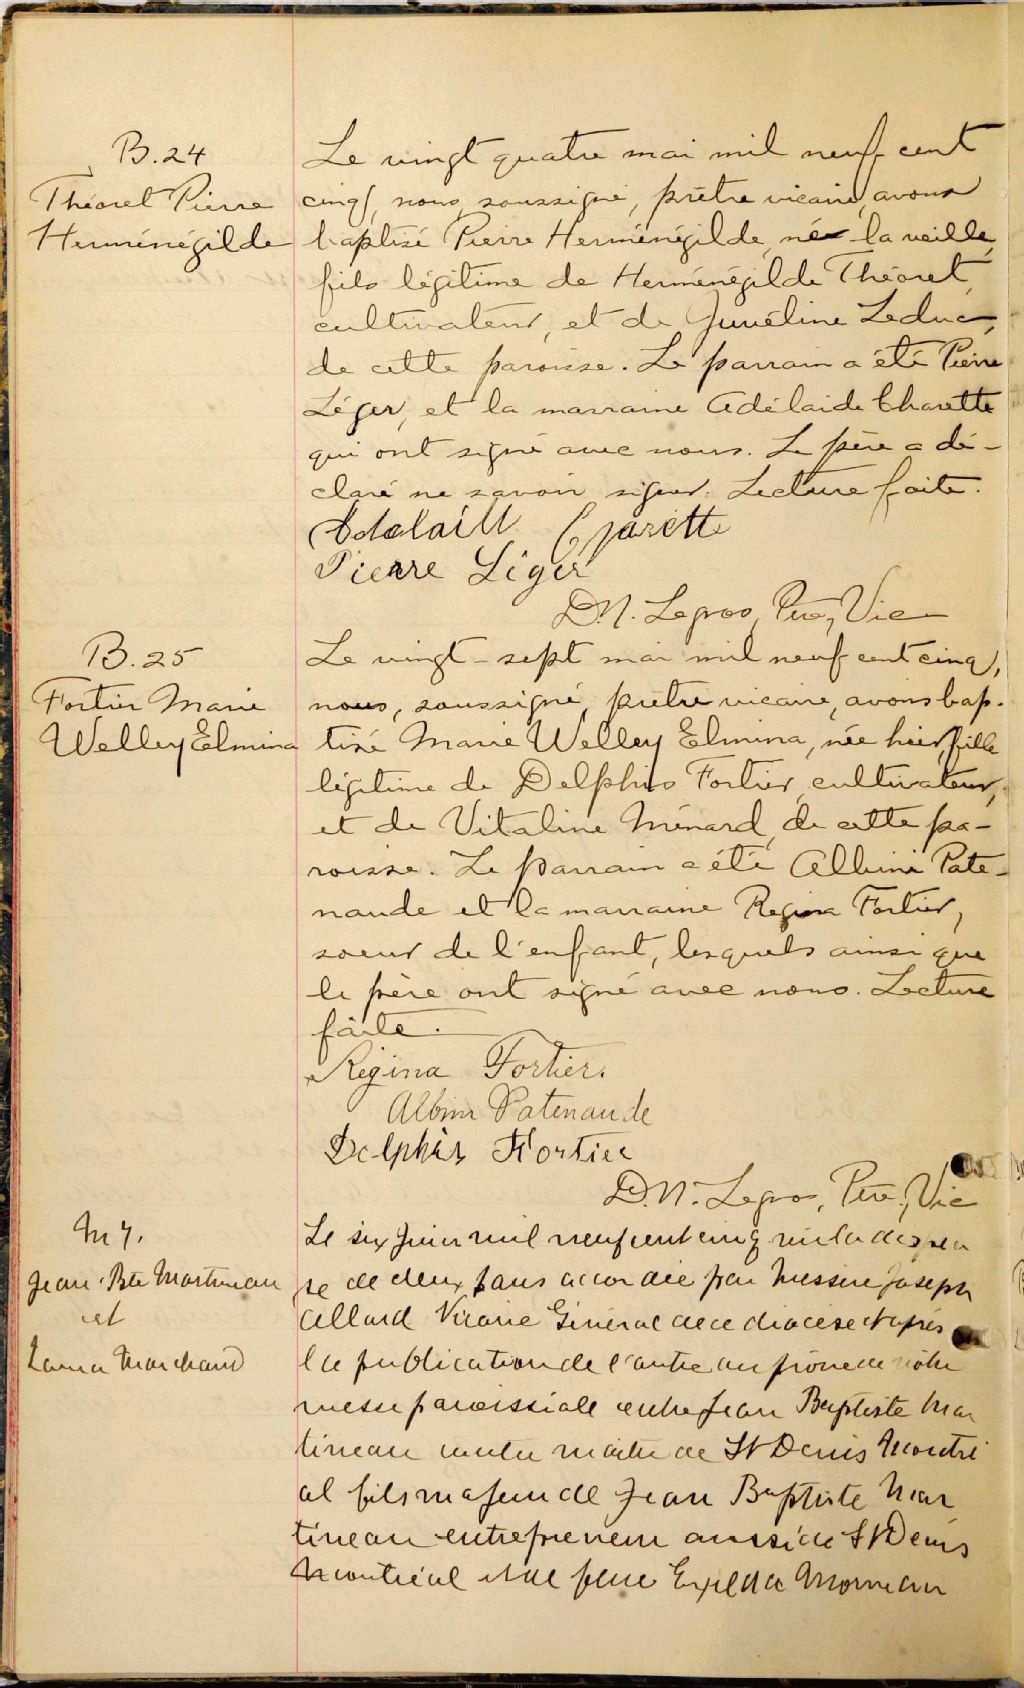 B.24
Théoret Pierre
Herménégilde
Le vingt quatre mai mil neuf cent
cinq, nous, soussigné, prêtre vicaire, avons
baptisé Pierre Herménégilde, né la veille,
fils légitime de Herménégilde Théoret,
cultivateur, et de Juvéline Leduc,
de cette paroisse. Le parrain a été Pierre
Léger, et la marraine Adélaide Charette
qui ont signé avec nous. Le père a dé-
claré ne savoir signer. Lecture faite.
Charette
Pierre Léger
D.N. Legros, Ptre, Vic
B.25
Fortier Marie
Welley Elmina
Le vingt-sept mai mil neuf cent cinq,
nous, soussigné, prêtre vicaire, avons bap-
tisé Marie Welley Elmina, née hier, fille
légitime de Delphis Fortier, cultivateur,
et de Vitaline Ménard, de cette pa-
roisse. Le parrain a été Albini Pate-
naude et la marraine Regina Fortier,
soeur de l'enfant, lesquels ainsi que
le père ont signé avec nous. Lecture
faite.
Régina Fortier.
Albini Patenaude
Delphis Fortier
D.N. Legros, Ptre, Vic
M 7.
Jean Bte Martineau
et
Laura Marchand
Le six Juin mil neuf cent cinq vu la dispen
se de deux bans accordée par Messire Joseph
Allard Vicaire Général de ce diocèse et après
la publication de l'autre au prône de notre
messe paroissiale entre Jean Baptiste Mar
tineau de St Denis Montré
al fils majeur de Jean Baptiste Mar
tineau entrepreneur aussi de St Denis
Montréal et de feue Exilda Morneau